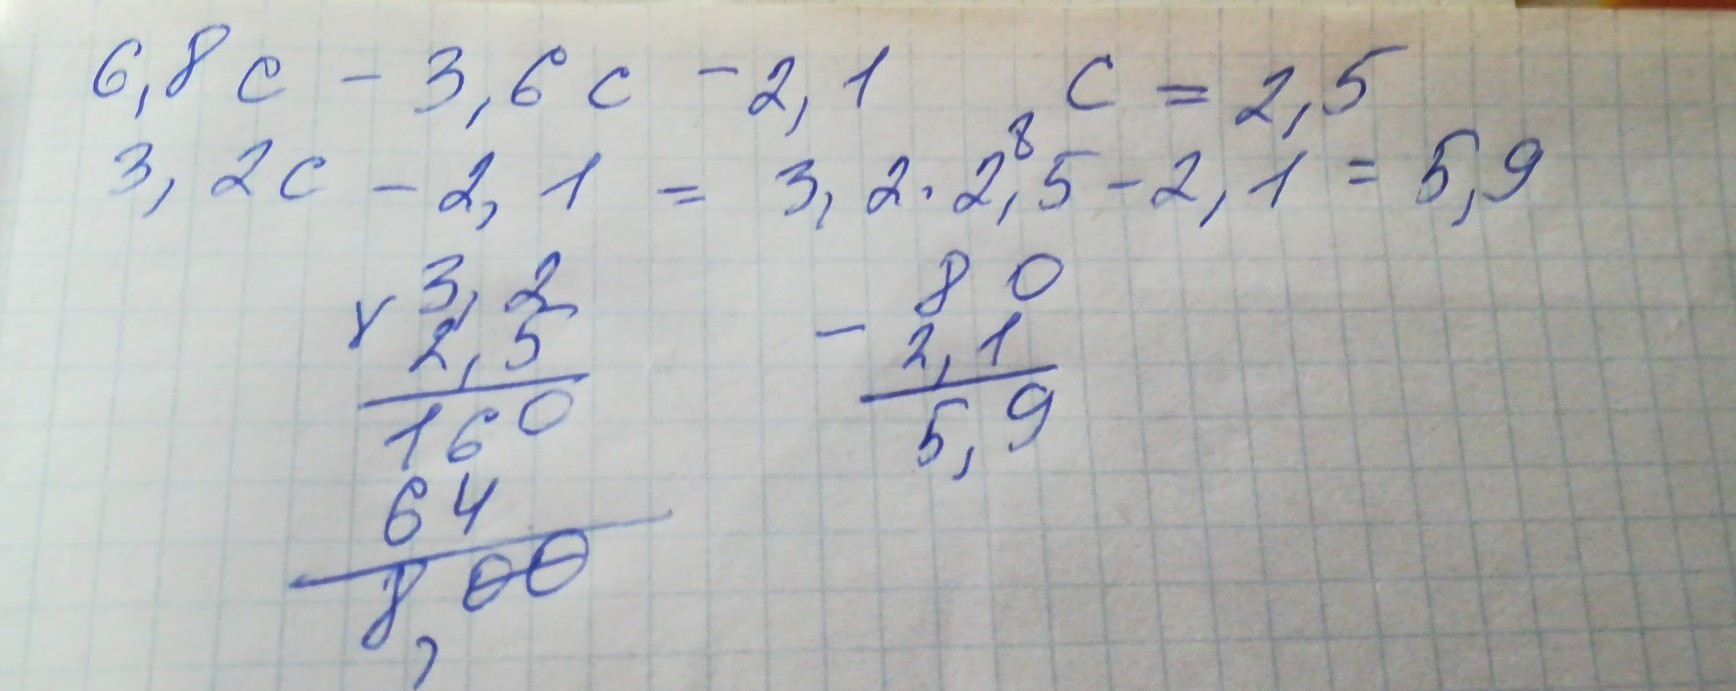 6,8c - 3,6c - 2,1 c = 2,5
8
3,2c - 2,1 = 3,2 · 2,5 - 2,1 = 5,9
× 3,2
2,5
160
64
8,00
- 80
2,1
5,9